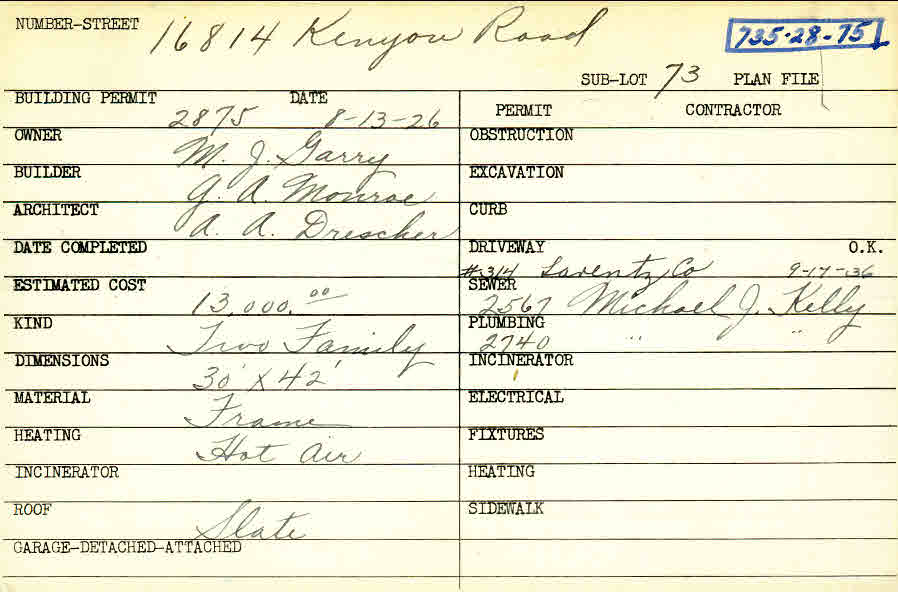 NUMBER-STREET 16814 Kenyon Road 735-28-75
SUB-LOT 73 PLAN FILE
BUILDING PERMIT 2875 DATE 8-13-26
OWNER M. J. Garry
BUILDER G. A. Monroe
ARCHITECT A. A. Drescher
DATE COMPLETED
ESTIMATED COST 13,000.00
KIND Two Family
DIMENSIONS 30' X 42'
MATERIAL Frame
HEATING Hot Air
INCINERATOR
ROOF Slate
GARAGE-DETACHED-ATTACHED
PERMIT CONTRACTOR
OBSTRUCTION
EXCAVATION
CURB
DRIVEWAY O.K.
#314 Lorentz Co 9-17-36
SEWER
2567 Michael J. Kelly
PLUMBING
2740 " "
INCINERATOR
ELECTRICAL
FIXTURES
HEATING
SIDEWALK